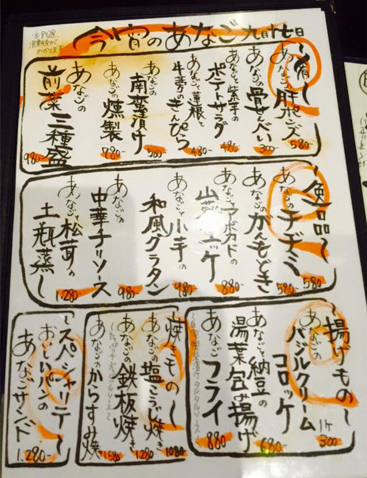 今宵のあなご九月七日
〜肴〜
あなごの肝ポンズ 580-
あなごの骨せんべい 300-
あなごと紫芋の
ポテトサラダ 480-
あなごと
牛蒡のきんぴら
あなごの
南蛮漬け
あなごの
燻製 780-
あなごの
前菜三種盛 980-
〜一品〜
あなごのチヂミ 580-
あなごのがんもどき 580-
あなごとアボカドの
山葵ユッケ 880-
あなごと小芋の
和風グラタン 980-
あなごの
中華チリソース 980-
あなごと松茸の
土瓶蒸し 1.280-
揚げもの〜
あなごの
バジルクリーム
コロッケ 1ケ 300-
あなごと納豆の
湯葉包み揚げ 680-
あなごの
フライ 880-
焼きもの〜
あなごの塩こうじ焼き 1080-
あなごの鉄板焼き 1280-
あなごのからすみ焼 1580-
スペシャリテ〜
おいしいパンの
あなごサンド 1.280-